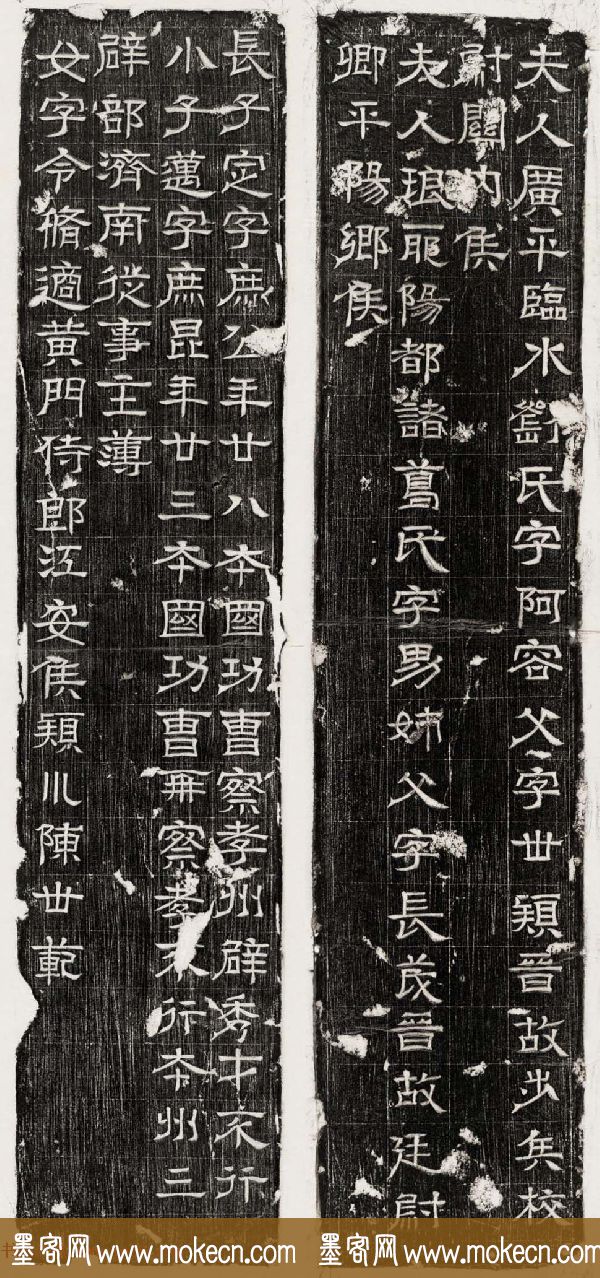 夫人廣平臨水劉氏字阿容父字世穎晉故步兵校
尉關內侯
夫人琅耶陽都諸葛氏字男姉父字長茂晉故廷尉
卿平陽鄉侯
長子定字庶公年廿八本國功曹察孝州辟秀才不行
小子邁字庶昆年廿三本國功曹再察孝不行本州三
辟部濟南從事主薄
女字令脩適黃門侍郎江安侯穎川陳世範
墨客网 www.mokecn.com 墨客网 www.mokecn.com